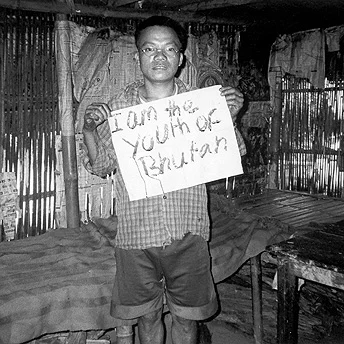 I am the
Youth of
Bhutan